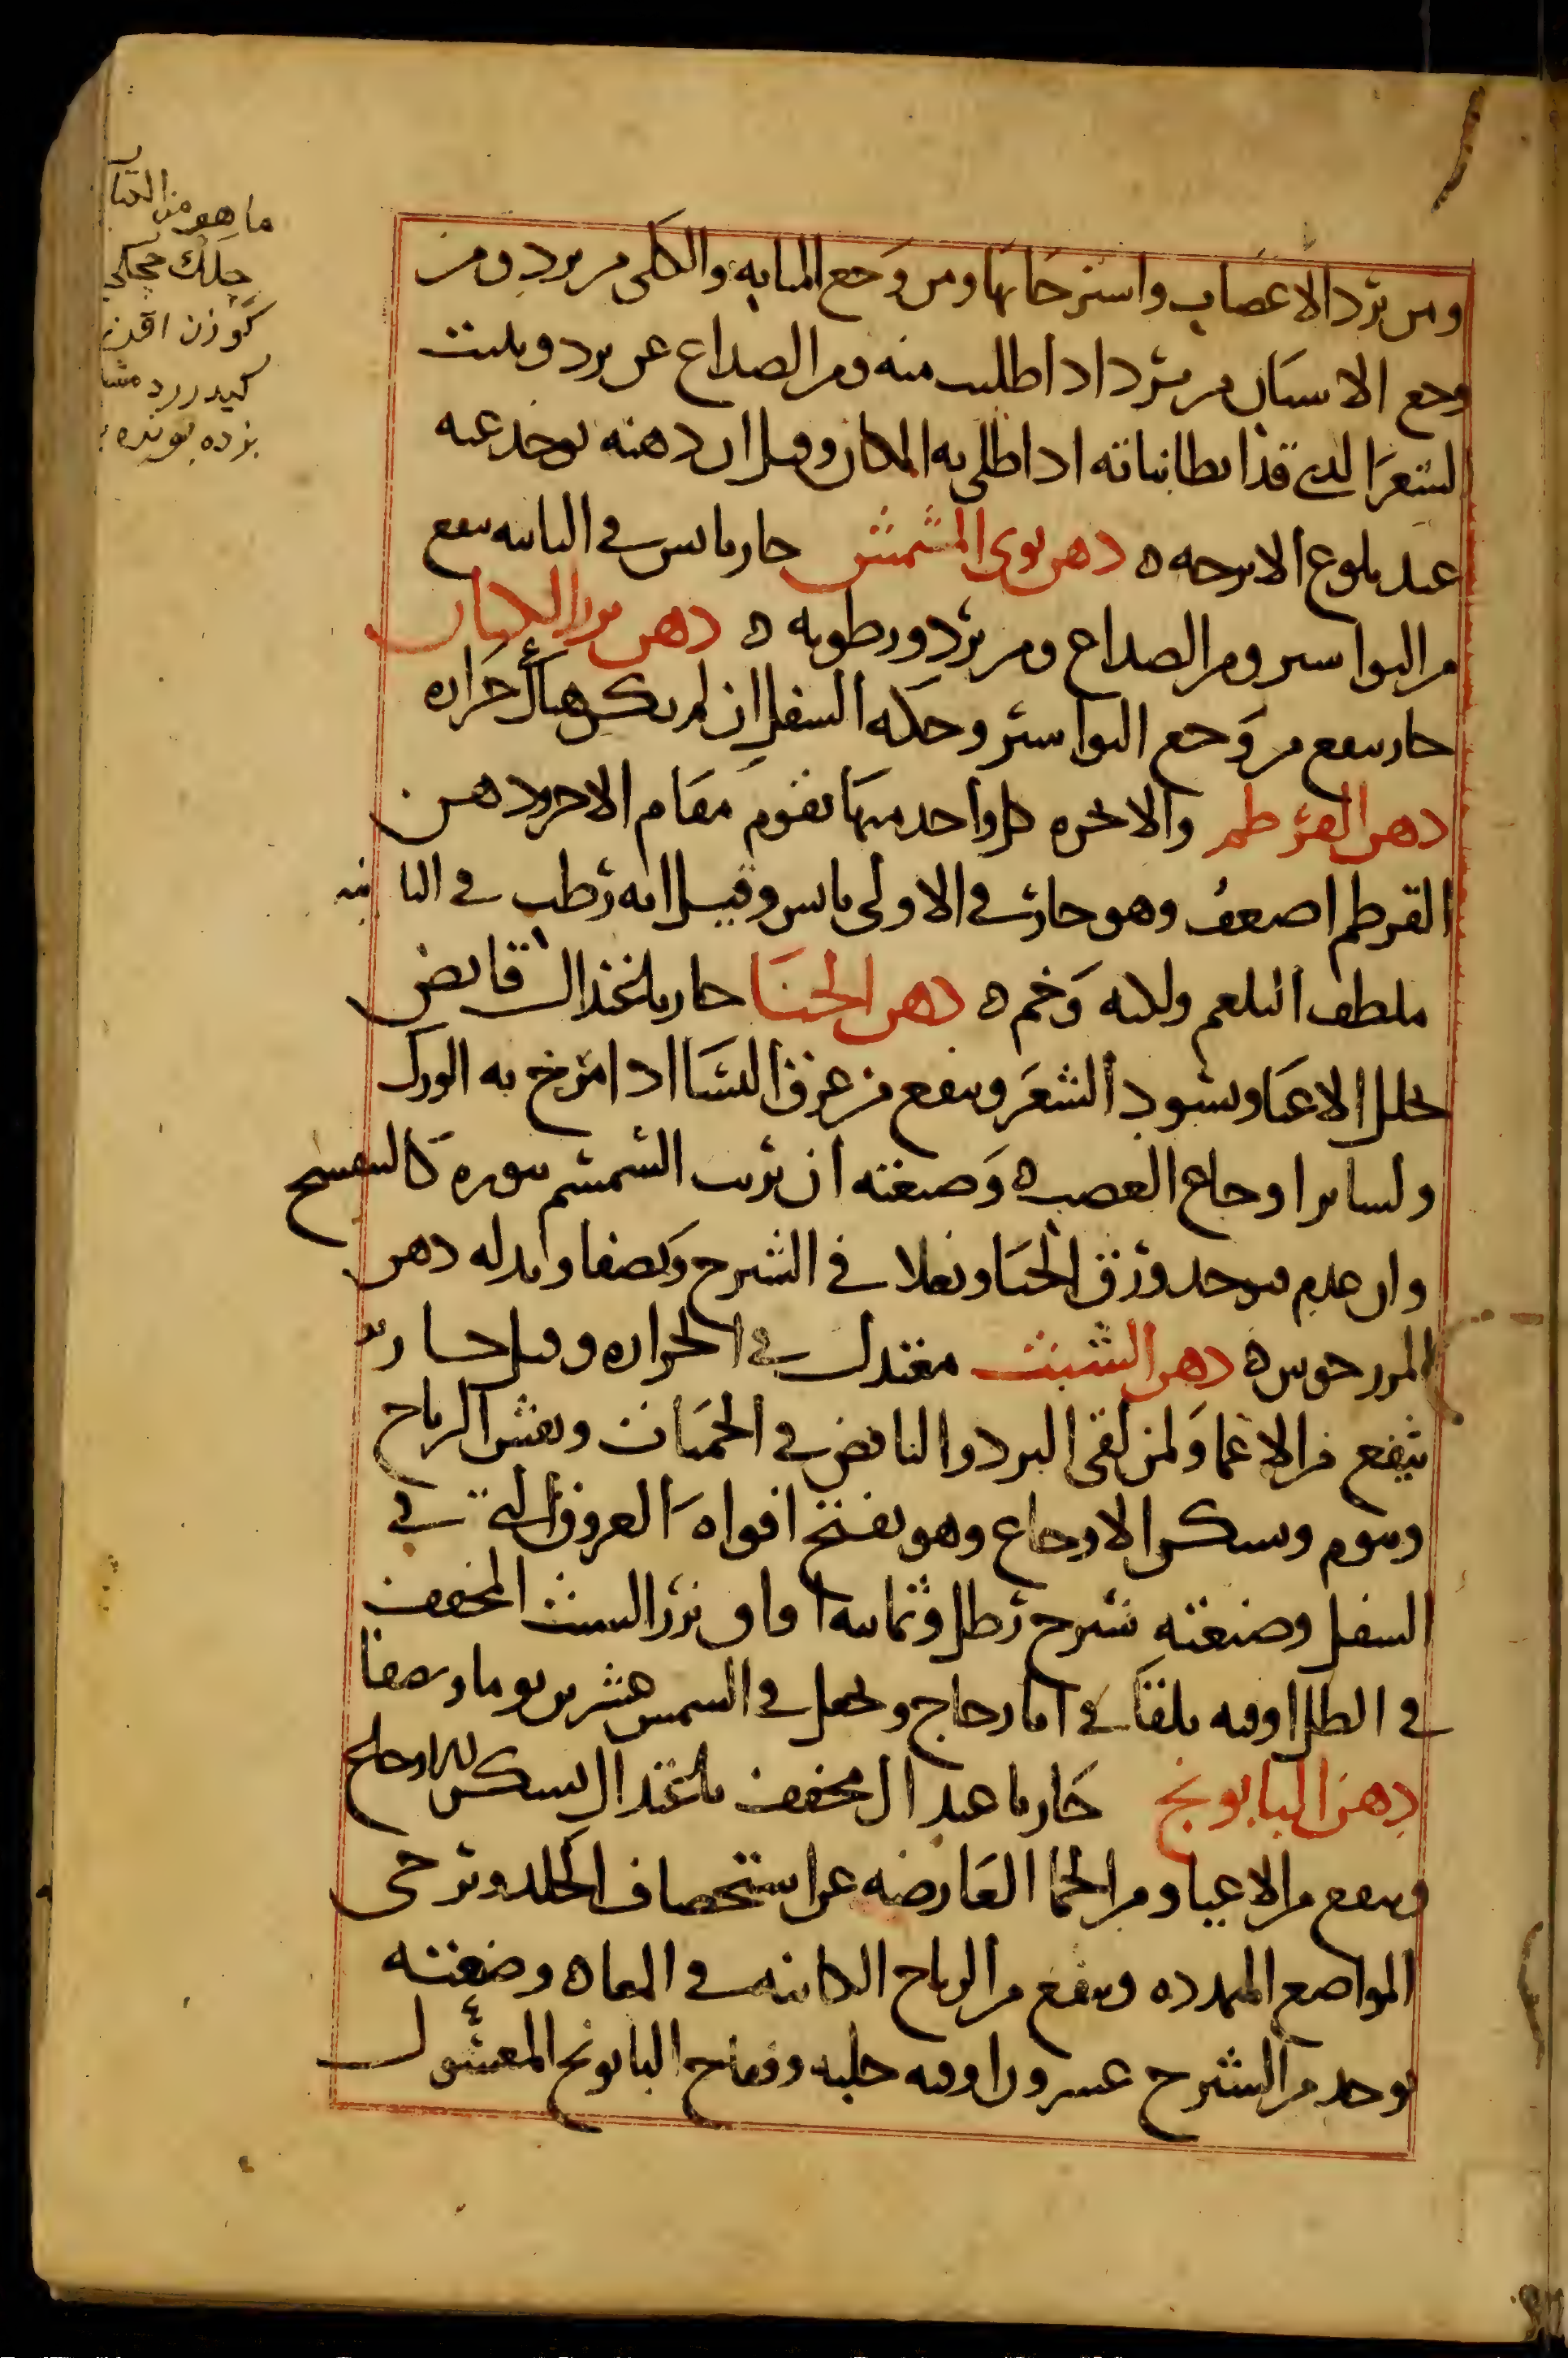 ومن برد الاعصاب واسترخائها ومن وجع المثانه والكلى من برد ومن
وجع الاسنان من برد اذا طليت منه ومن الصداع عن برد وينبت
الشعر الذي قد ابطا نباته اذا طلي به المكان وقيل ان دهنه يوخذ عنه
عند بلوغ الاترجه ه دهن نوى المشمش حار يابس في الثانيه ينفع
من البواسير ومن الصداع ومن برد ورطوبه ه دهن بزر الكتان
حار ينفع من وجع البواسير وحكه السفل ان لم يكن هناك حراره
دهن القرطم والانجره كل واحد منهما يقوم مقام الاخر ودهن
القرطم اضعف وهو حار في الاولى يابس وقيل انه رطب في الثانيه
ملطف البلغم ولكنه وخم ه دهن الحنا حار باعتدال قابض
يحلل الاعيا ويسود الشعر وينفع من عرق النسا اذا مرخ به الورك
ولساير اوجاع العصب ه وصنعته ان يربب السمسم بنوره كالبنفسج
وان عدم فيوخذ ورق الحنا ويغلا في الشيرج ويصفا وبدله دهن
المرزنجوش ه دهن الشبث معتدل في الحراره وقيل حار
ينفع من الاعيا ولمن لقي البرد والنافض في الحميات ويفش الرياح
وينوم ويسكن الاوجاع وهو يفتح افواه العروق التي في
السفل وصنعته شيرج رطل وثمانيه اواق بزر الشبث المجفف
في الظل اوقيه يلقا في انا زجاج ويجعل في الشمس عشرين يوما ويصفا
دهن البابونج حار باعتدال مجفف باعتدال يسكن الاوجاع
وينفع من الاعيا ومن الحما العارضه عن استحصاف الجلد ويرخى
المواضع المتمدده وينفع من الرياح الكائنه في المعا ه وصنعته
يوخذ من الشيرج عشرون اوقيه حلبه وفقاح البابونج المغسول
ما هو من